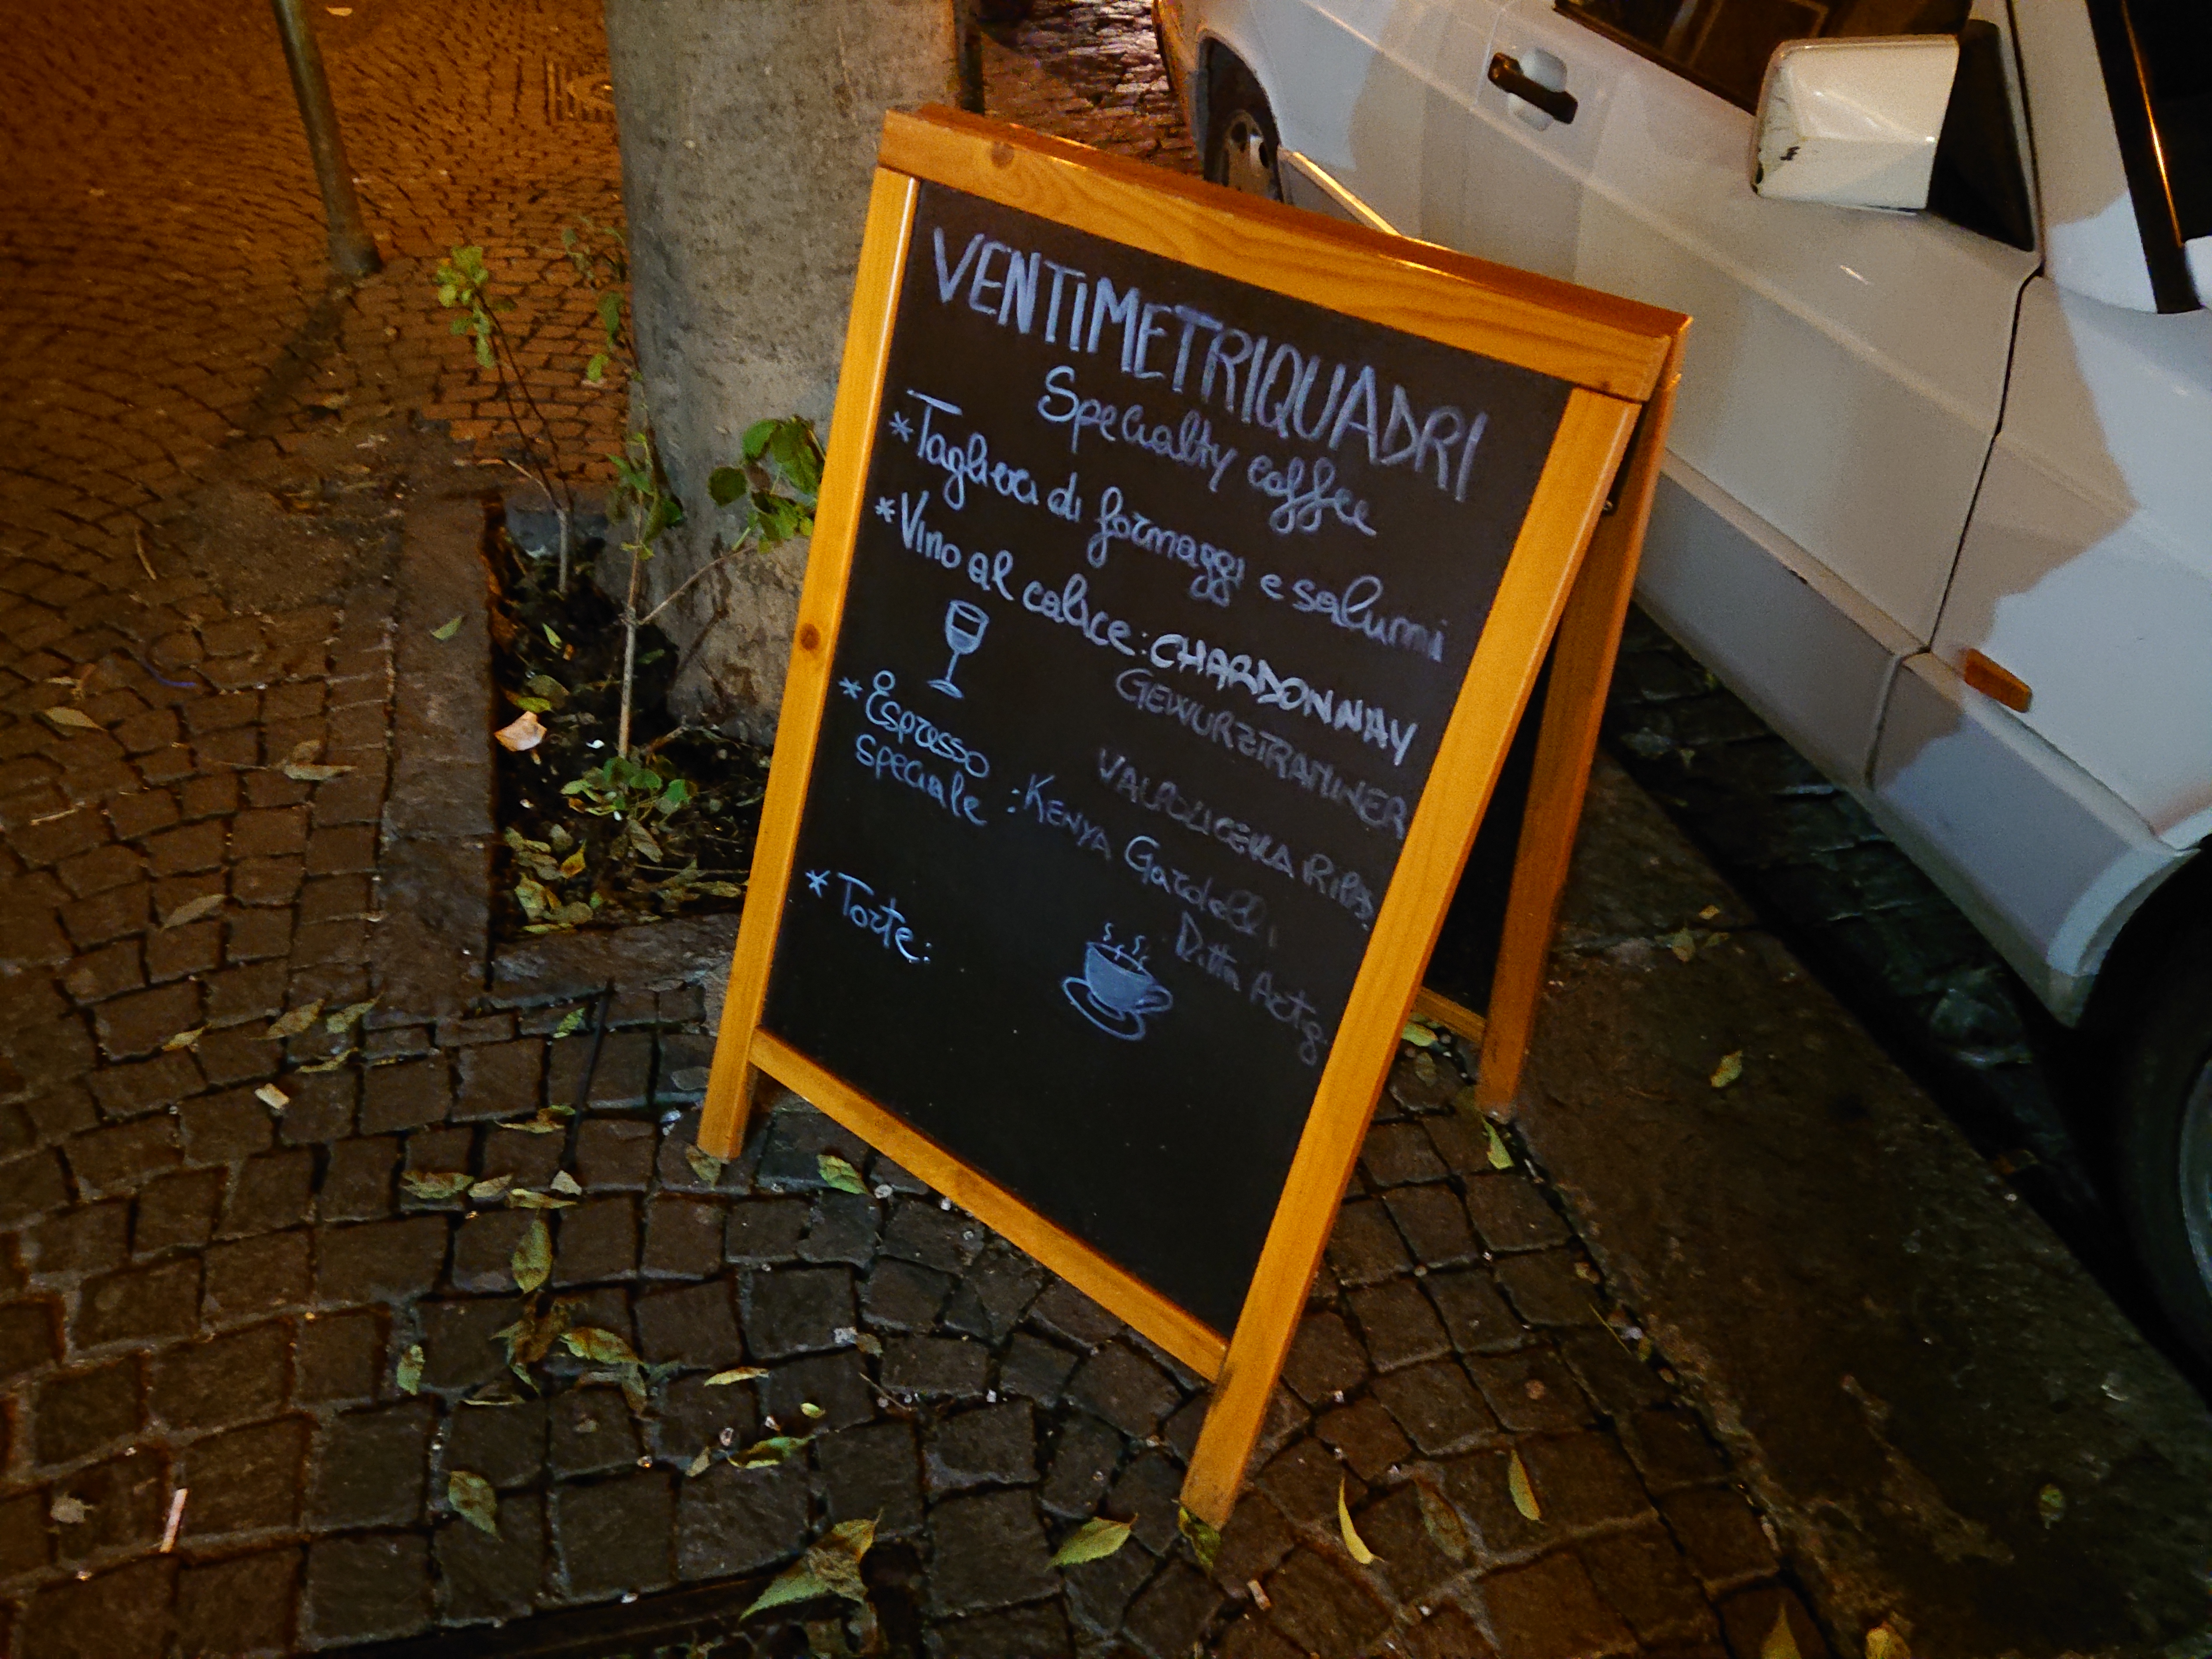 VENTIMETRIQUADRI
Specialty coffee
*Taglieri di formaggi e salumi
*Vino al calice: CHARDONNAY
GEWURZTRAMINER
VALPOLICELLA RIPAS.
*Espresso
speciale : KENYA Gardelli,
Ditta Artig.
*Torte: